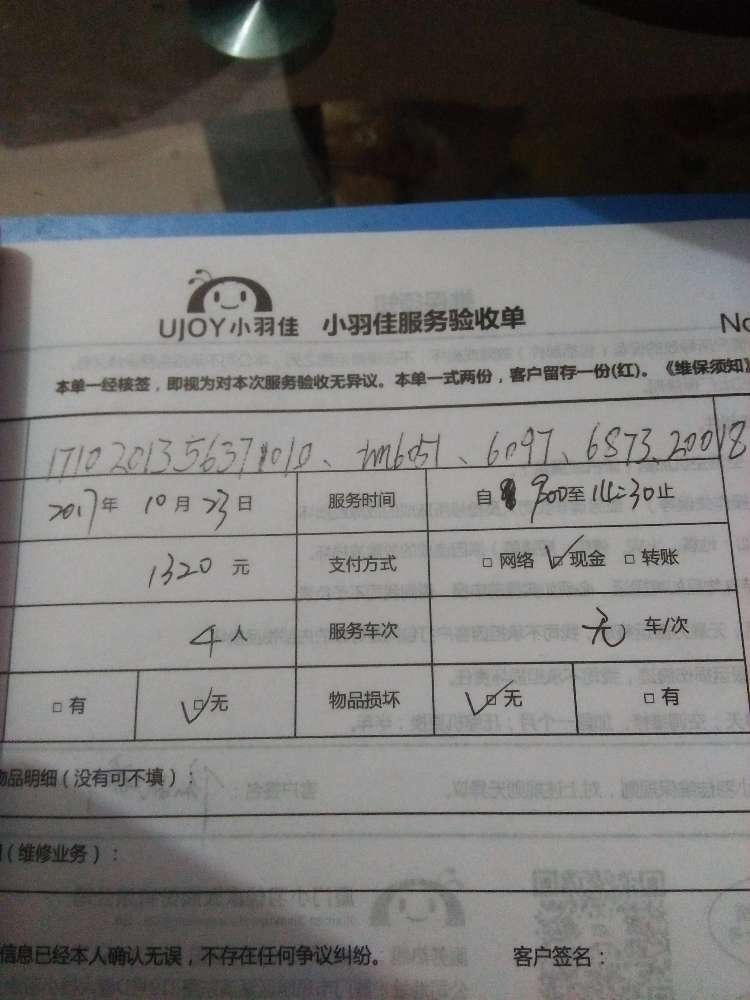 UJOY小羽佳 小羽佳服务验收单 No
本单一经核签，即视为对本次服务验收无异议。本单一式两份，客户留存一份(红)。《维保须知》
1710201356371010、tm6051、6097、6873、20018
2017年 10月23日 服务时间 自 900至14:30止
1320元 支付方式 □ 网络 ☑现金 □ 转账
4人 服务车次 无 车/次
□ 有 ☑无 物品损坏 ☑无 □ 有
物品明细（没有可不填）：
（维修业务）：
信息已经本人确认无误，不存在任何争议纠纷。 客户签名：